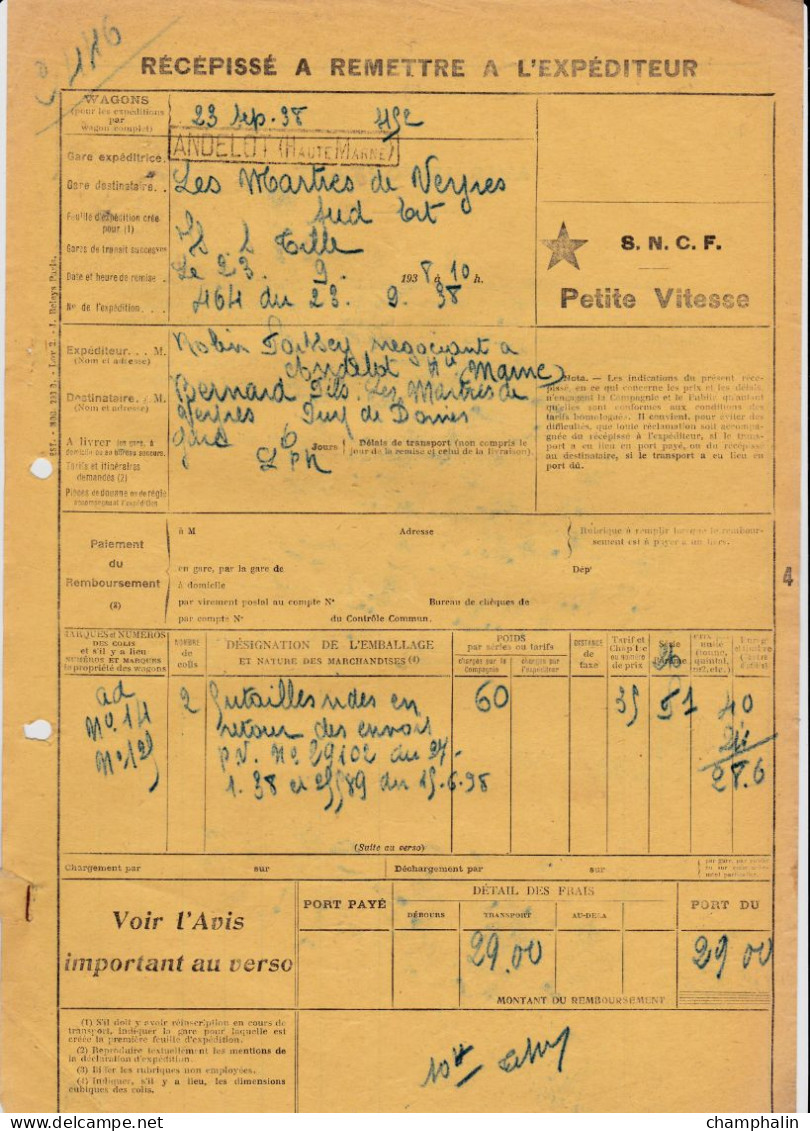 RÉCÉPISSÉ A REMETTRE A L'EXPÉDITEUR
WAGONS
(pour les expéditions
par
Wagon complet)
23 Sep. 38
ANDELOT (HAUTE MARNE)
Gare expéditrice.
Gare destinataire. . Les Martres de Veyres
Feuille d'expédition créée
pour (1)
Sud Est
Gares de transit successives
Is. S. Tille
Date et heure de remise. Le 23. 9. 1938 à 10 h.
No de l'expédition. . . 464 du 23. 9. 38
S. N. C. F.
Petite Vitesse
Expéditeur. . . M.
(Nom et adresse)
Robin négociant à
Andelot Hte Marne
Destinataire. . M.
(Nom et adresse)
Bernard Fils. Les Martres de
Veyres Puy de Dôme
A livrer (en gare, à
domicile ou au bureau succurs.
gare
6 Jours
Délais de transport (non compris le
jour de la remise et celui de la livraison).
Tarifs et itinéraires
demandés (2)
Pièces de douane ou de régie
accompagnant l'expédition
Nota. — Les indications du présent réce-
pissé, en ce qui concerne les prix et les délais,
n'engagent la Compagnie et le Public qu'autant
qu'elles sont conformes aux conditions des
tarifs homologués. Il convient, pour éviter des
difficultés, que toute réclamation soit accompa-
gnée du récépissé à l'expéditeur, si le trans-
port a eu lieu en port payé, ou du récépissé
au destinataire, si le transport a eu lieu en
port dû.
Paiement
du
Remboursement
(3)
à M Adresse
Rubrique à remplir lorsque le rembour-
sement est à payer à un tiers.
en gare, par la gare de Dépt
à domicile
par virement postal au compte No Bureau de chèques de
par compte No du Contrôle Commun.
4
MARQUES et NUMÉROS
DES COLIS
et s'il y a lieu
NUMÉROS ET MARQUES
de propriété des wagons
NOMBRE
de
colis
DÉSIGNATION DE L'EMBALLAGE
ET NATURE DES MARCHANDISES (4)
POIDS
par séries ou tarifs
chargés par la
Compagnie
chargés par
l'expéditeur
DISTANCE
de
taxe
Tarif et
Chapitre
ou numéro
de prix
ad
No 14
No 125
2 futailles vides en
retour des envois
P.V. No 29102 du 27-
1. 38 et 25589 du 15.6.38
60
35
51
40
28.6
(Suite au verso)
Chargement par sur Déchargement par sur
Voir l'Avis
important au verso
PORT PAYÉ
DÉTAIL DES FRAIS
DÉBOURS TRANSPORT AU-DELA
PORT DU
29.00
29 00
MONTANT DU REMBOURSEMENT
(1) S'il doit y avoir réinscription en cours de
transport, indiquer la gare pour laquelle est
créée la première feuille d'expédition.
(2) Reproduire textuellement les mentions de
la déclaration d'expédition.
(3) Biffer les rubriques non employées.
(4) Indiquer, s'il y a lieu, les dimensions
cubiques des colis.
champhalin